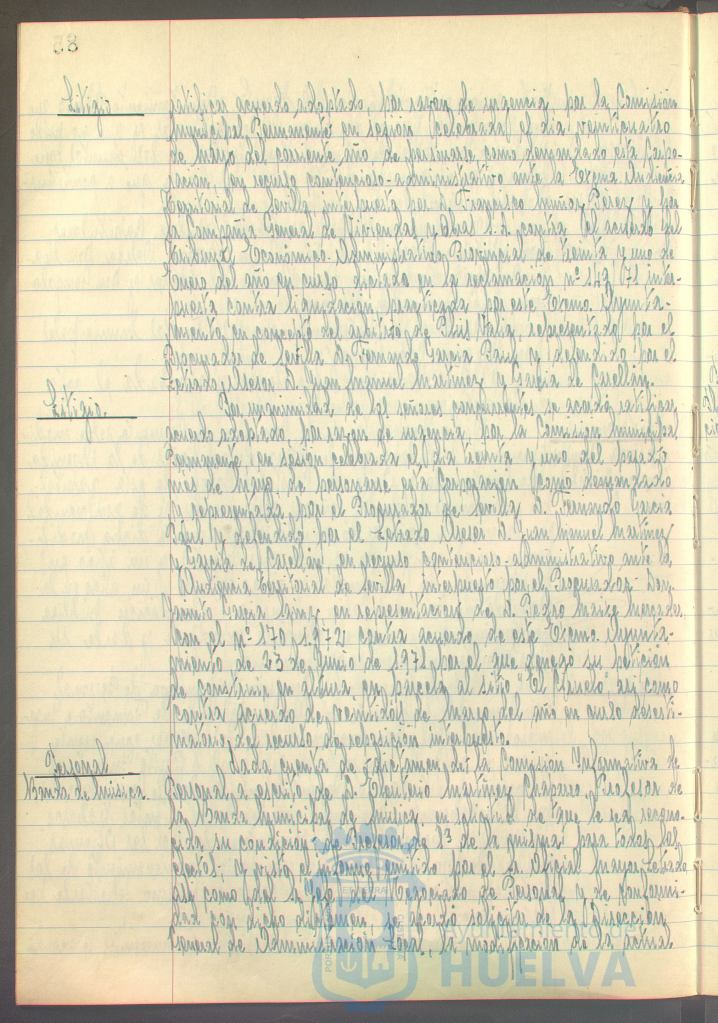 58
Litigio
ratificar acuerdo adoptado, por razón de urgencia por la Comisión
municipal Permanente en sesión celebrada el día veinticuatro
de Marzo del corriente año de personarse como demandado esta Corpo-
ración, en recurso contencioso-administrativo ante la Excma Audiencia
Territorial de Sevilla, interpuesto por D. Francisco Muñoz Pérez y por
la Compañia General de Viviendas y Obras S.A. contra el acuerdo del
Tribunal Económico-Administrativo Provincial de treinta y uno de
Enero del año en curso dictado en la reclamación nº 149/71 inter-
puesta contra liquidación practicada por este Excmo. Ayunta-
miento en concepto del arbitrio de Plus Valia, representado por el
Procurador de Sevilla D. Fernando Garcia Paul y defendido por el
Letrado Asesor D. Juan Manuel Martinez y Garcia de
Litigio.
Por unanimidad de los señores concurrentes se acordó ratificar
acuerdo adoptado, por razón de urgencia por la Comisión Municipal
Permanente, en sesión celebrada el día treinta y uno del pasado
mes de Mayo, de personarse esta Corporación como demandado
y representada por el Procurador de Sevilla D. Fernando Garcia
Paul y defendido por el Letrado Asesor D. Juan Manuel Martinez
y Garcia de en recurso contencioso-administrativo ante la
Audiencia Territorial de Sevilla, interpuesto por el Procurador Don
Garcia en representación de D. Pedro
con el nº 170/1.972 contra acuerdo de este Excmo. Ayunta-
miento de 23 de Junio de 1971 por el que denegó su petición
de construir en altura, en parcela al sitio "El así como
contra acuerdo de veintidós de Marzo del año en curso desesti-
matorio del recurso de reposición interpuesto.
Personal
Banda de Música.
Dada cuenta de dictamen de la Comisión Informativa de
Personal a escrito de D. Martinez Chaparro, Profesor de
la Banda Municipal de Música, en solicitud de que le sea recono-
cida su condición de Profesor de 1ª de la misma para todos los
efectos y visto el informe emitido por el Sr Oficial Mayor Letrado
así como del Sr Jefe del Negociado de Personal y de conformi-
dad con dicho dictamen, se acordó solicitar de la Dirección
General de Administración Local, la modificación de la actual
Ayuntamiento de
HUELVA